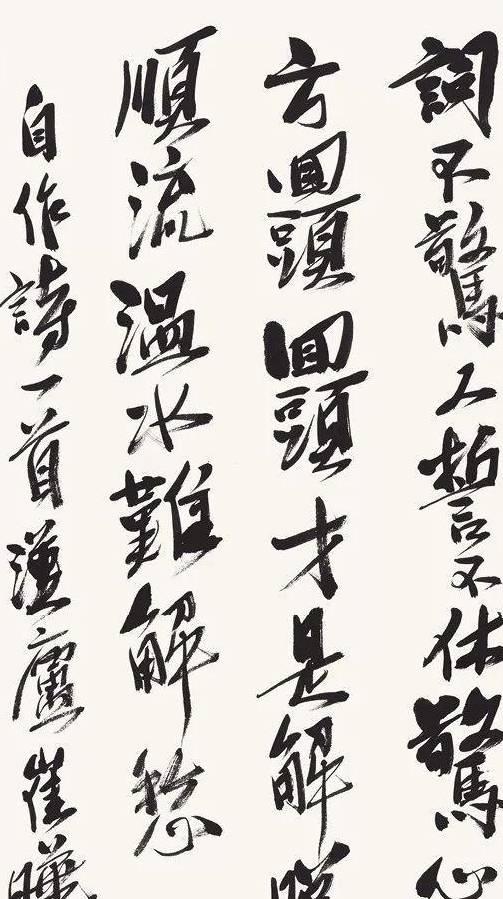 詞不驚人誓不休驚心
方回頭回頭才是解
順流溫水難解愁
自作詩一首漢廬崔